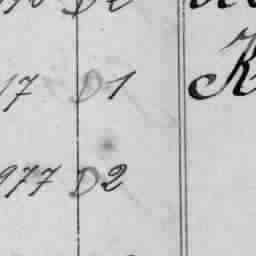 17 D1 K
977 D2